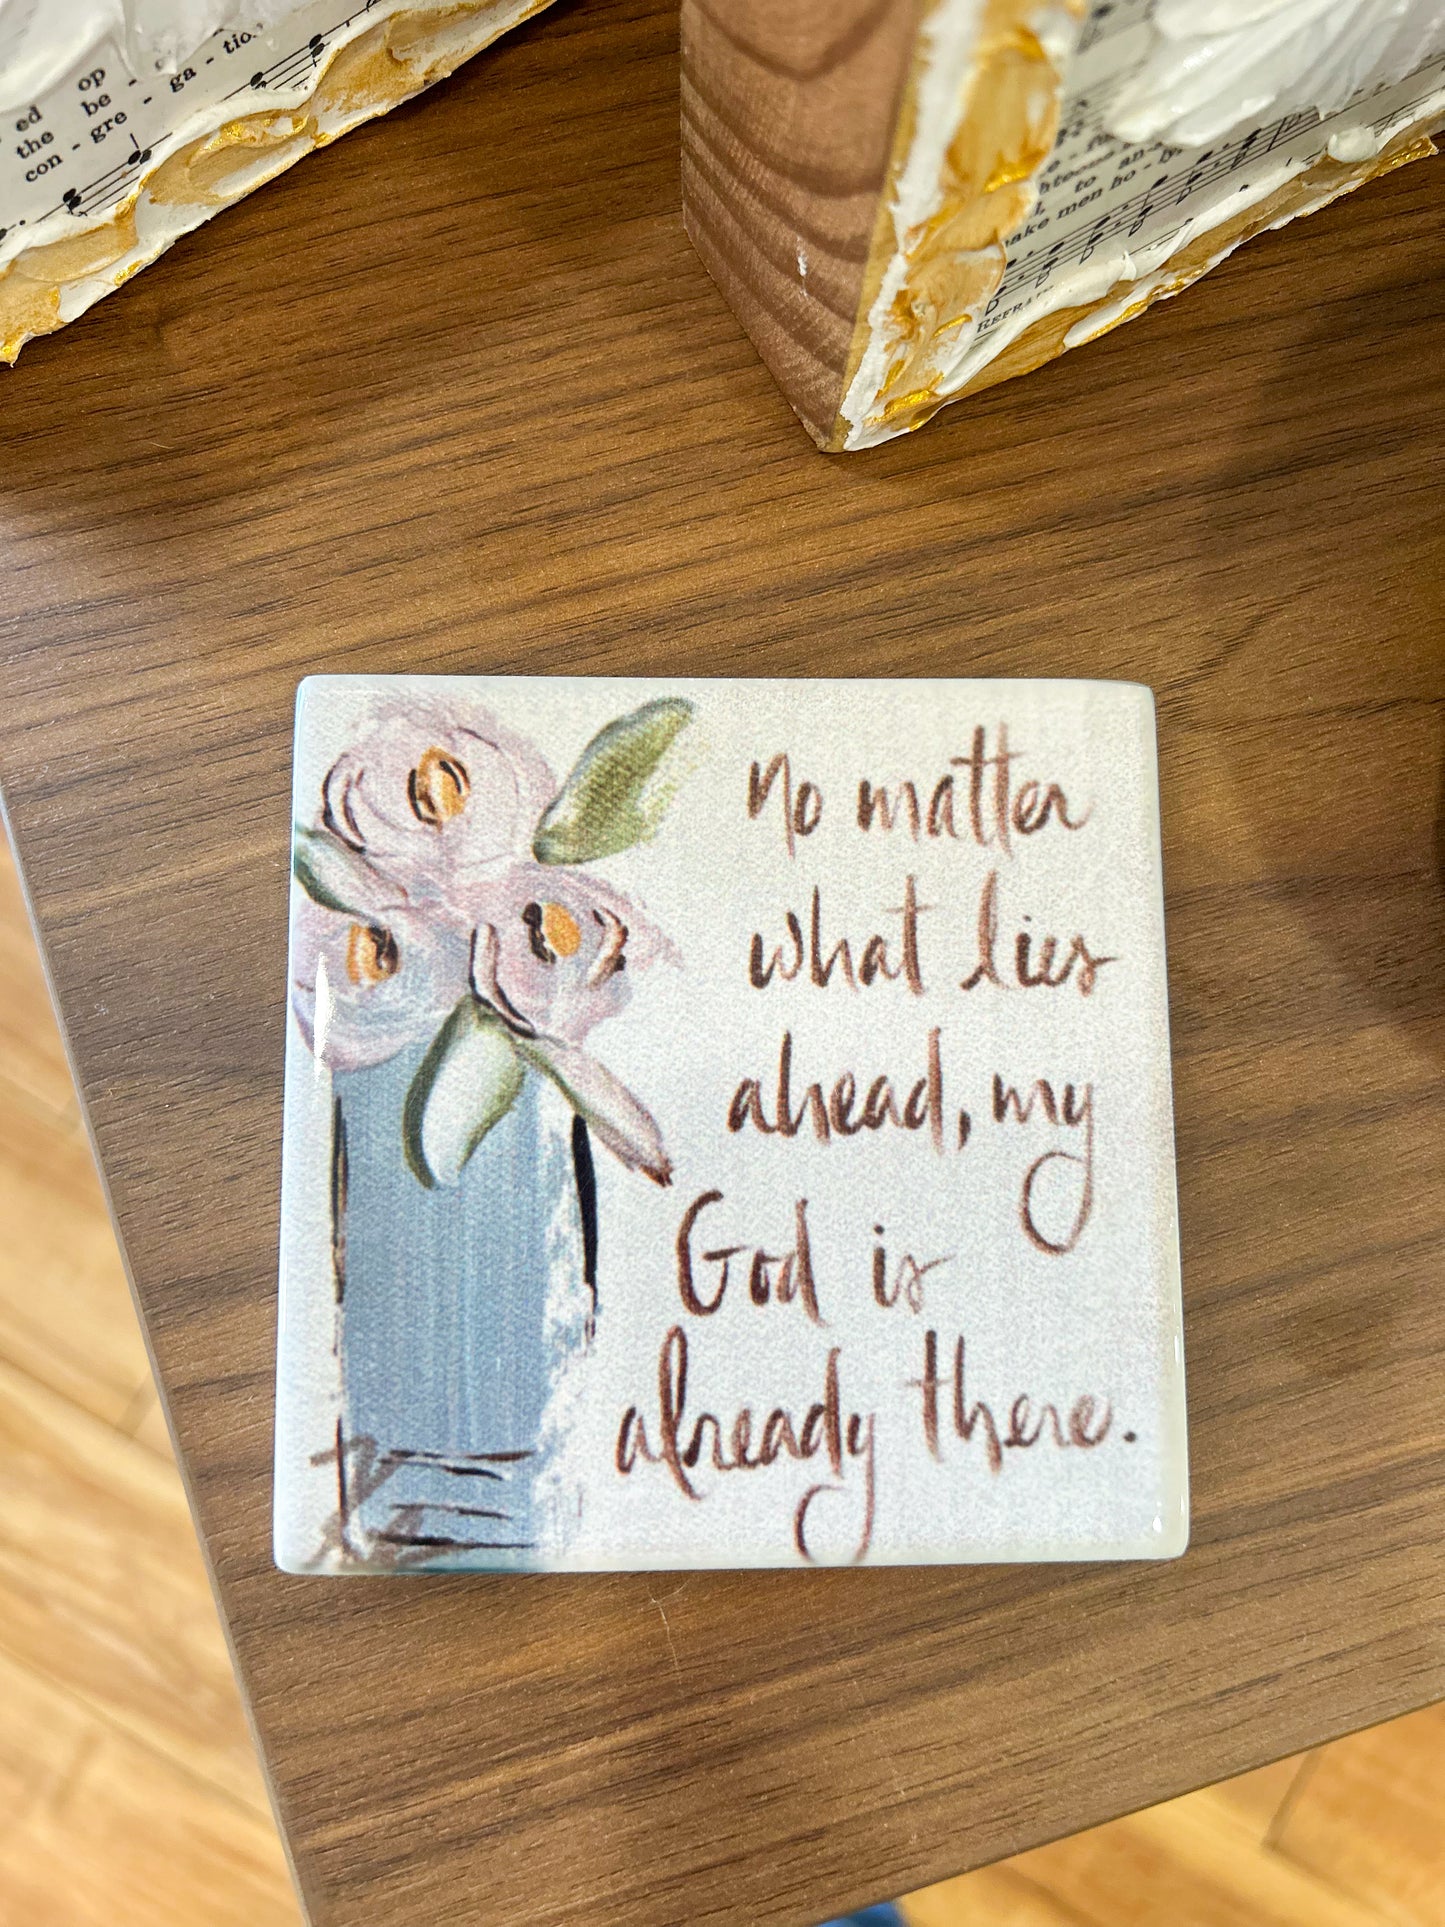 ed op
the be - 
con - gre - ga - tio
to
make men ho
REFRAI
no matter
what lies
ahead, my
God is
already there.